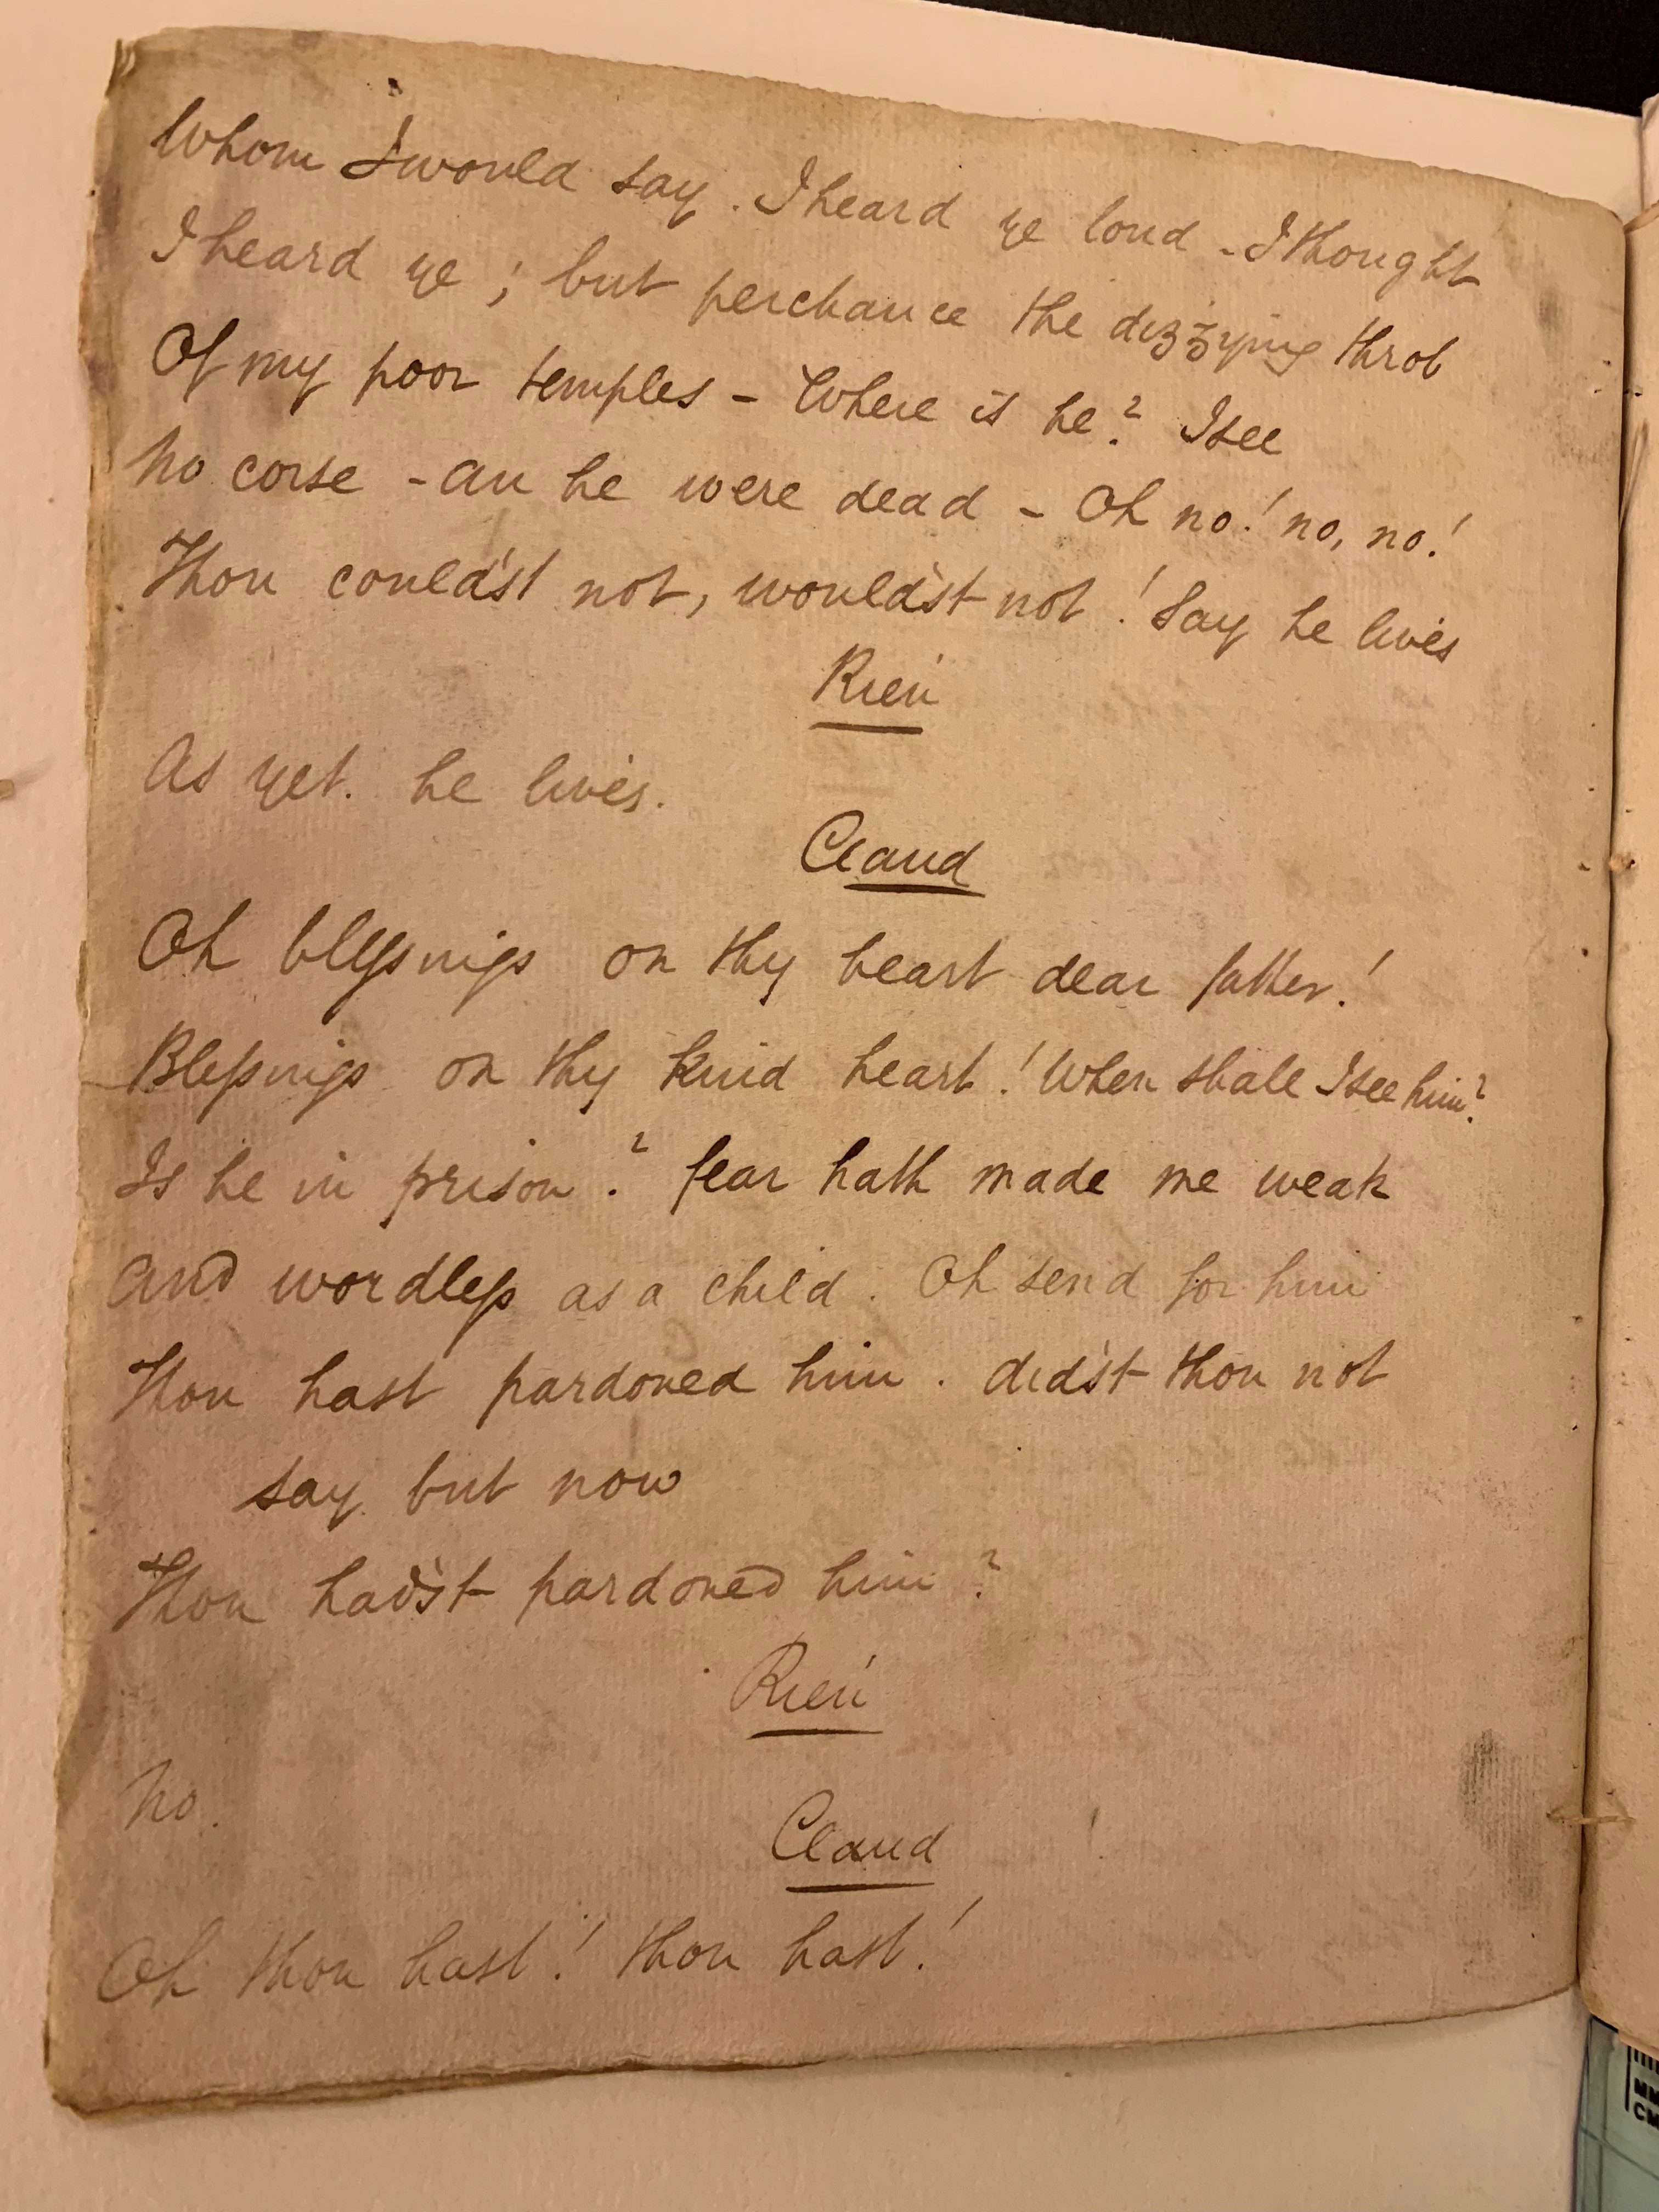 Whom I would say. I heard ye loud - I thought
I heard ye; but perchance the dizzying throb
Of my poor temples - Where is he? I see
No corse - an he were dead - Oh no! no, no!
Thou could'st not, would'st not! Say he lives
Rien
As yet. he lives.
Claud
Oh blessings on thy heart dear father!
Blessings on thy kind heart! When shall I see him?
Is he in prison? fear hath made me weak
And wordless as a child. Oh send for him
Thou hast pardoned him. did'st thou not
say but now
Thou had'st pardoned him?
Rien
No.
Claud
Oh thou hast! thou hast!
MM
CM